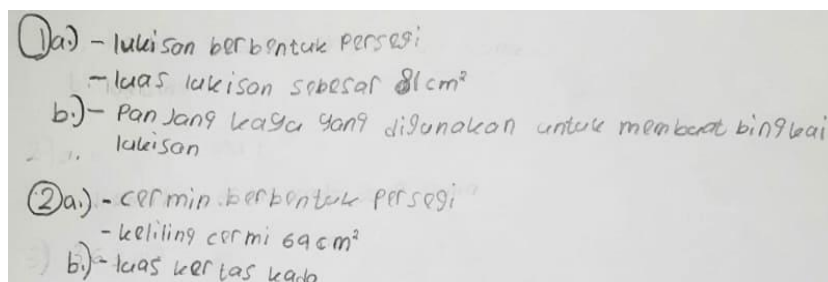 1 a.) - lukison berbentuk persegi
- luas lukison sebesar 81 cm²
b.) - Panjang kayu yang digunakan untuk membuat bingkai
lukisan
2 a.) - cermin berbentuk persegi
- keliling cermi 69 cm²
b.) - luas kertas kado